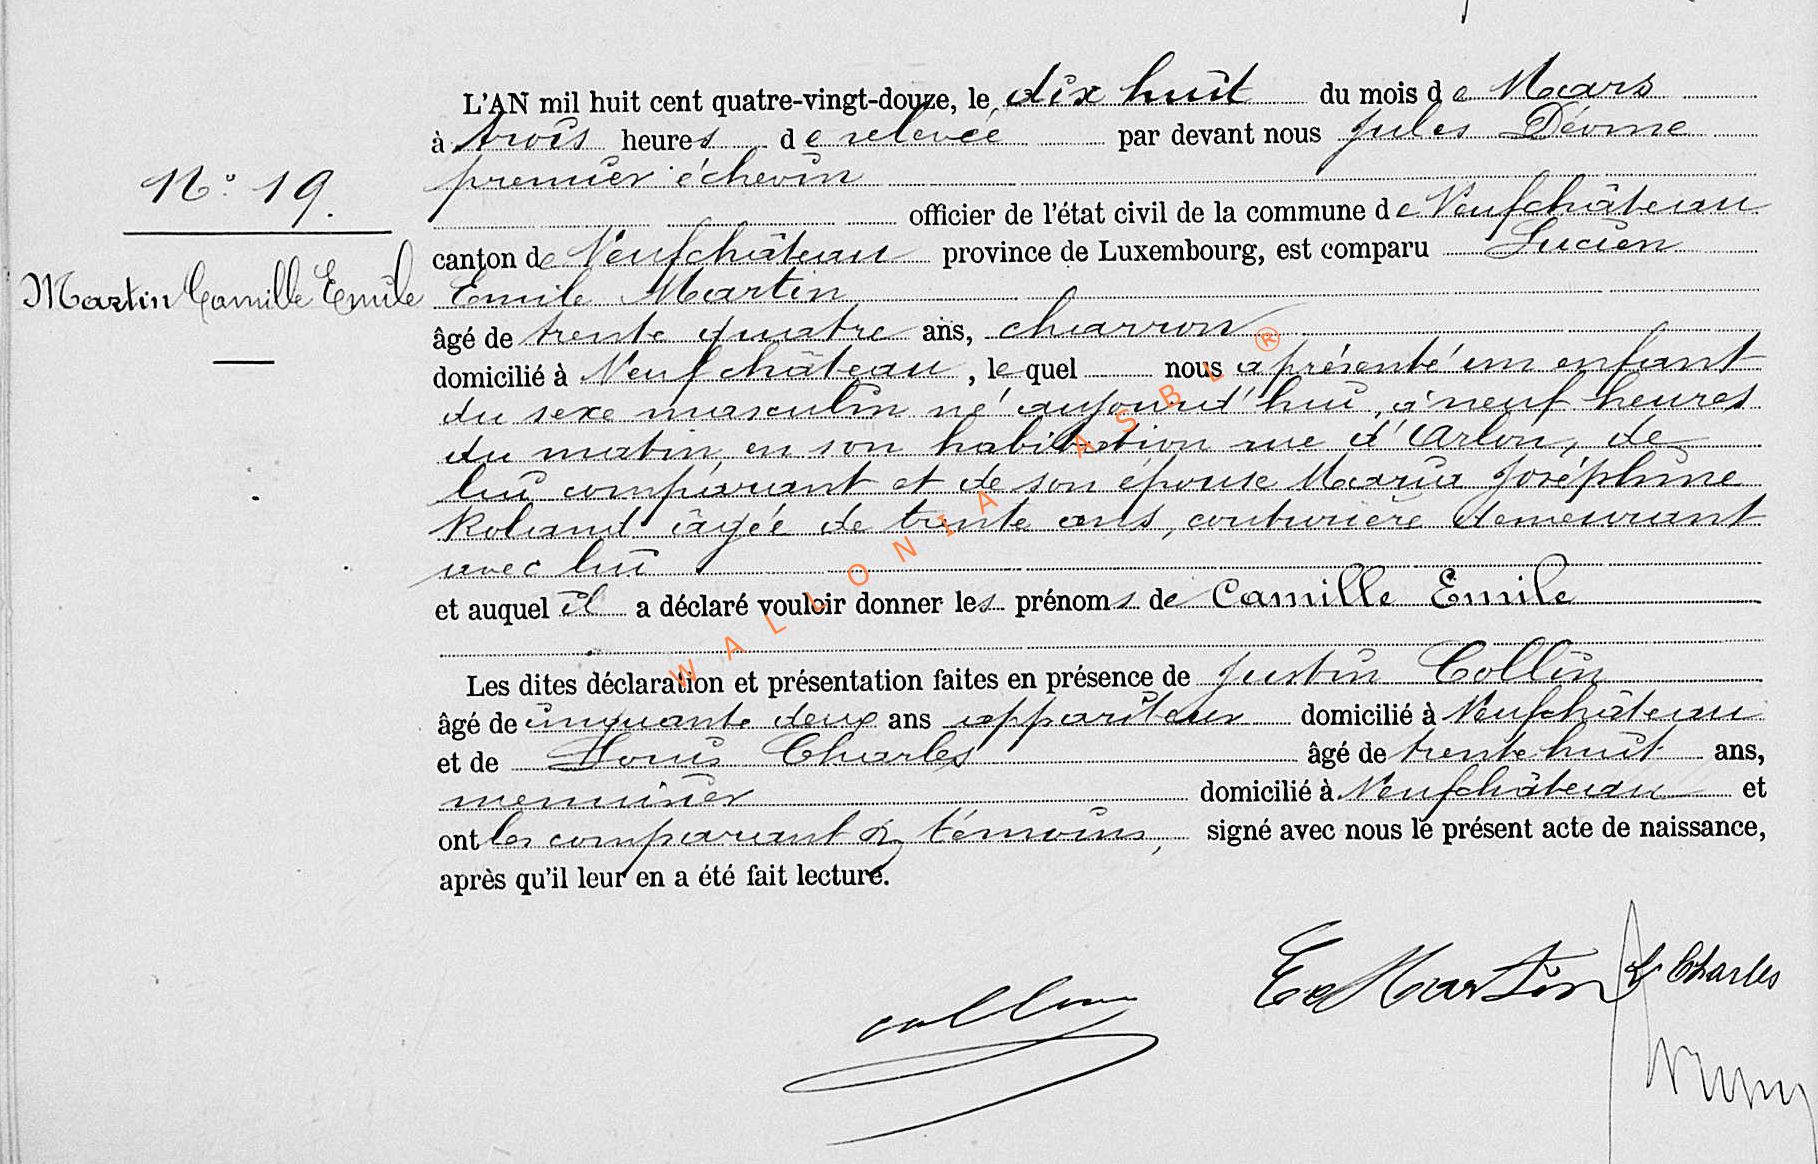 L'AN mil huit cent quatre-vingt-douze, le dix huit du mois de Mars
à trois heures de relevée par devant nous Jules Déome
premier échevin
N° 19.
officier de l'état civil de la commune de Neufchâteau
canton de Neufchâteau province de Luxembourg, est comparu Lucien
Martin Camille Emile
Emile Martin
âgé de trente quatre ans, charron
domicilié à Neufchâteau, lequel nous a présenté un enfant
du sexe masculin né aujourd'hui, à neuf heures
du matin, en son habitation rue d'Arlon, de
lui comparant et de son épouse Maria Joséphine
Roland âgée de trente ans, couturière demeurant
avec lui
et auquel il a déclaré vouloir donner les prénoms de Camille Emile
Les dites déclaration et présentation faites en présence de Justin Collin
âgé de cinquante deux ans appariteur domicilié à Neufchâteau
et de Louis Charles âgé de trente huit ans,
menuisier domicilié à Neufchâteau et
ont les comparant & témoins, signé avec nous le présent acte de naissance,
après qu'il leur en a été fait lecture.
Collin
E Martin
L. Charles
WALLONIA ASBL ®